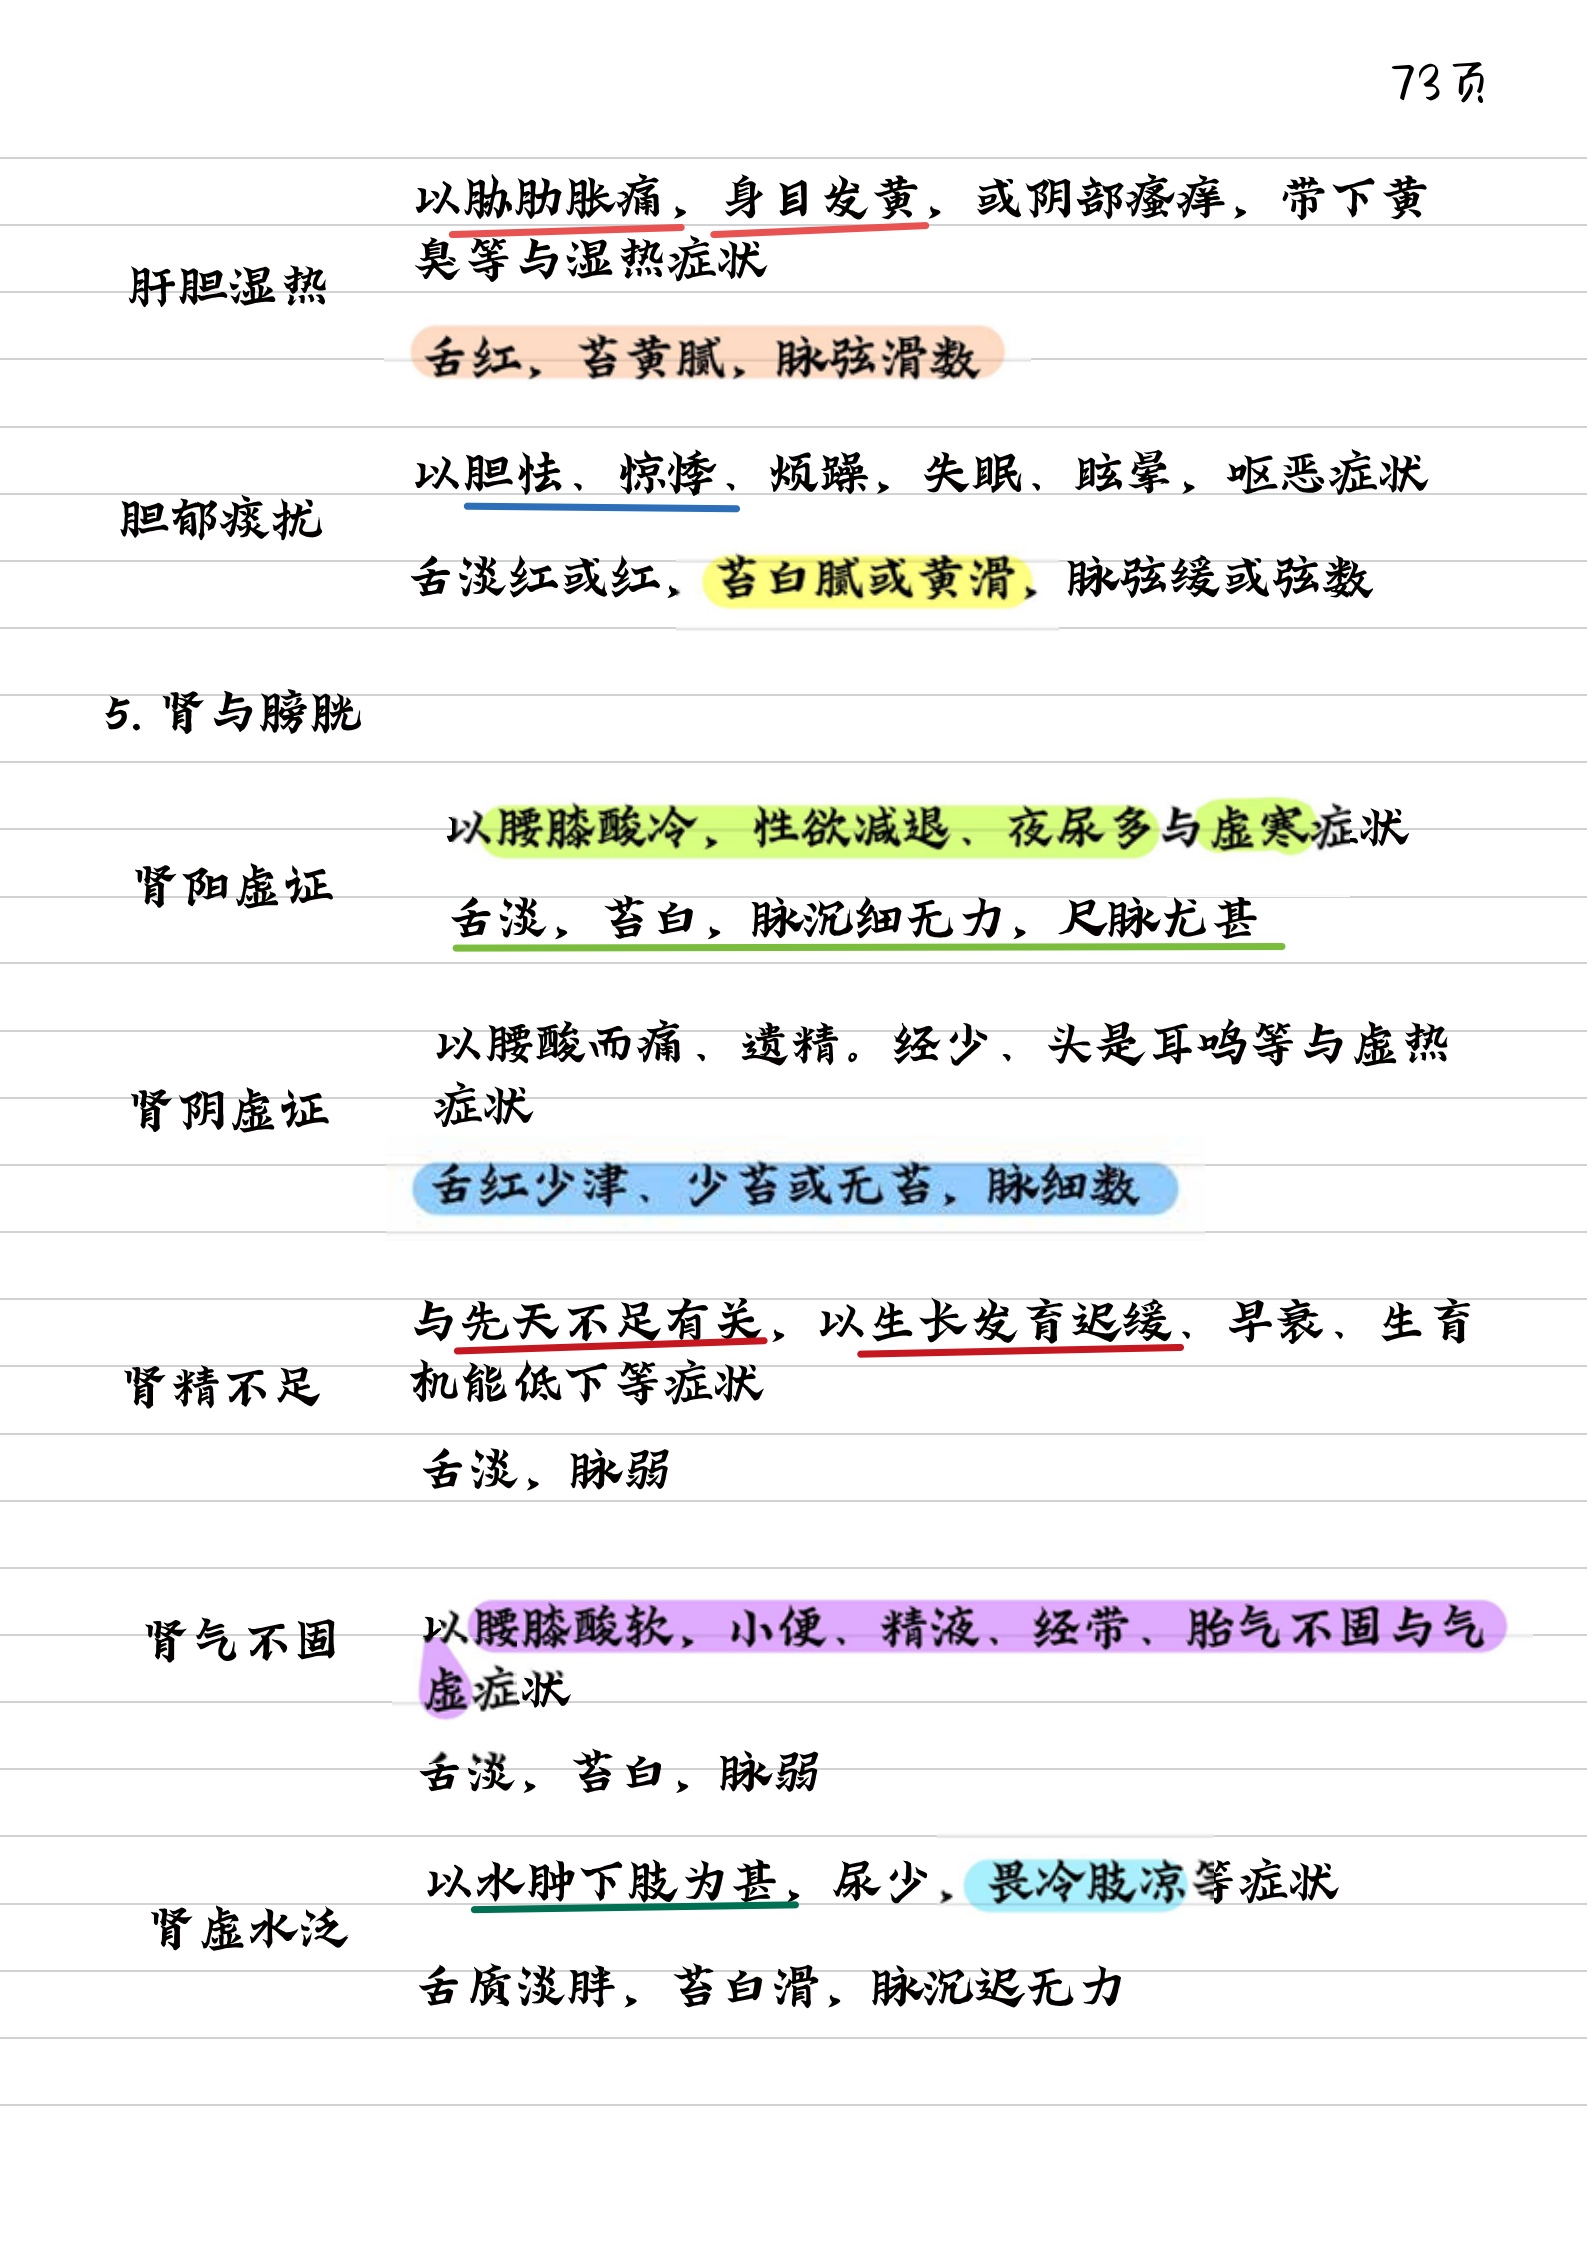 73页
以胁肋胀痛，身目发黄，或阴部瘙痒，带下黄
臭等与湿热症状
肝胆湿热
舌红，苔黄腻，脉弦滑数
以胆怯、惊悸、烦躁，失眠、眩晕，呕恶症状
胆郁痰扰
舌淡红或红，苔白腻或黄滑，脉弦缓或弦数
5. 肾与膀胱
以腰膝酸冷，性欲减退、夜尿多与虚寒症状
肾阳虚证
舌淡，苔白，脉沉细无力，尺脉尤甚
以腰酸而痛、遗精。经少、头是耳鸣等与虚热
肾阴虚证
症状
舌红少津、少苔或无苔，脉细数
与先天不足有关，以生长发育迟缓、早衰、生育
肾精不足
机能低下等症状
舌淡，脉弱
肾气不固
以腰膝酸软，小便、精液、经带、胎气不固与气
虚症状
舌淡，苔白，脉弱
以水肿下肢为甚，尿少，畏冷肢凉等症状
肾虚水泛
舌质淡胖，苔白滑，脉沉迟无力